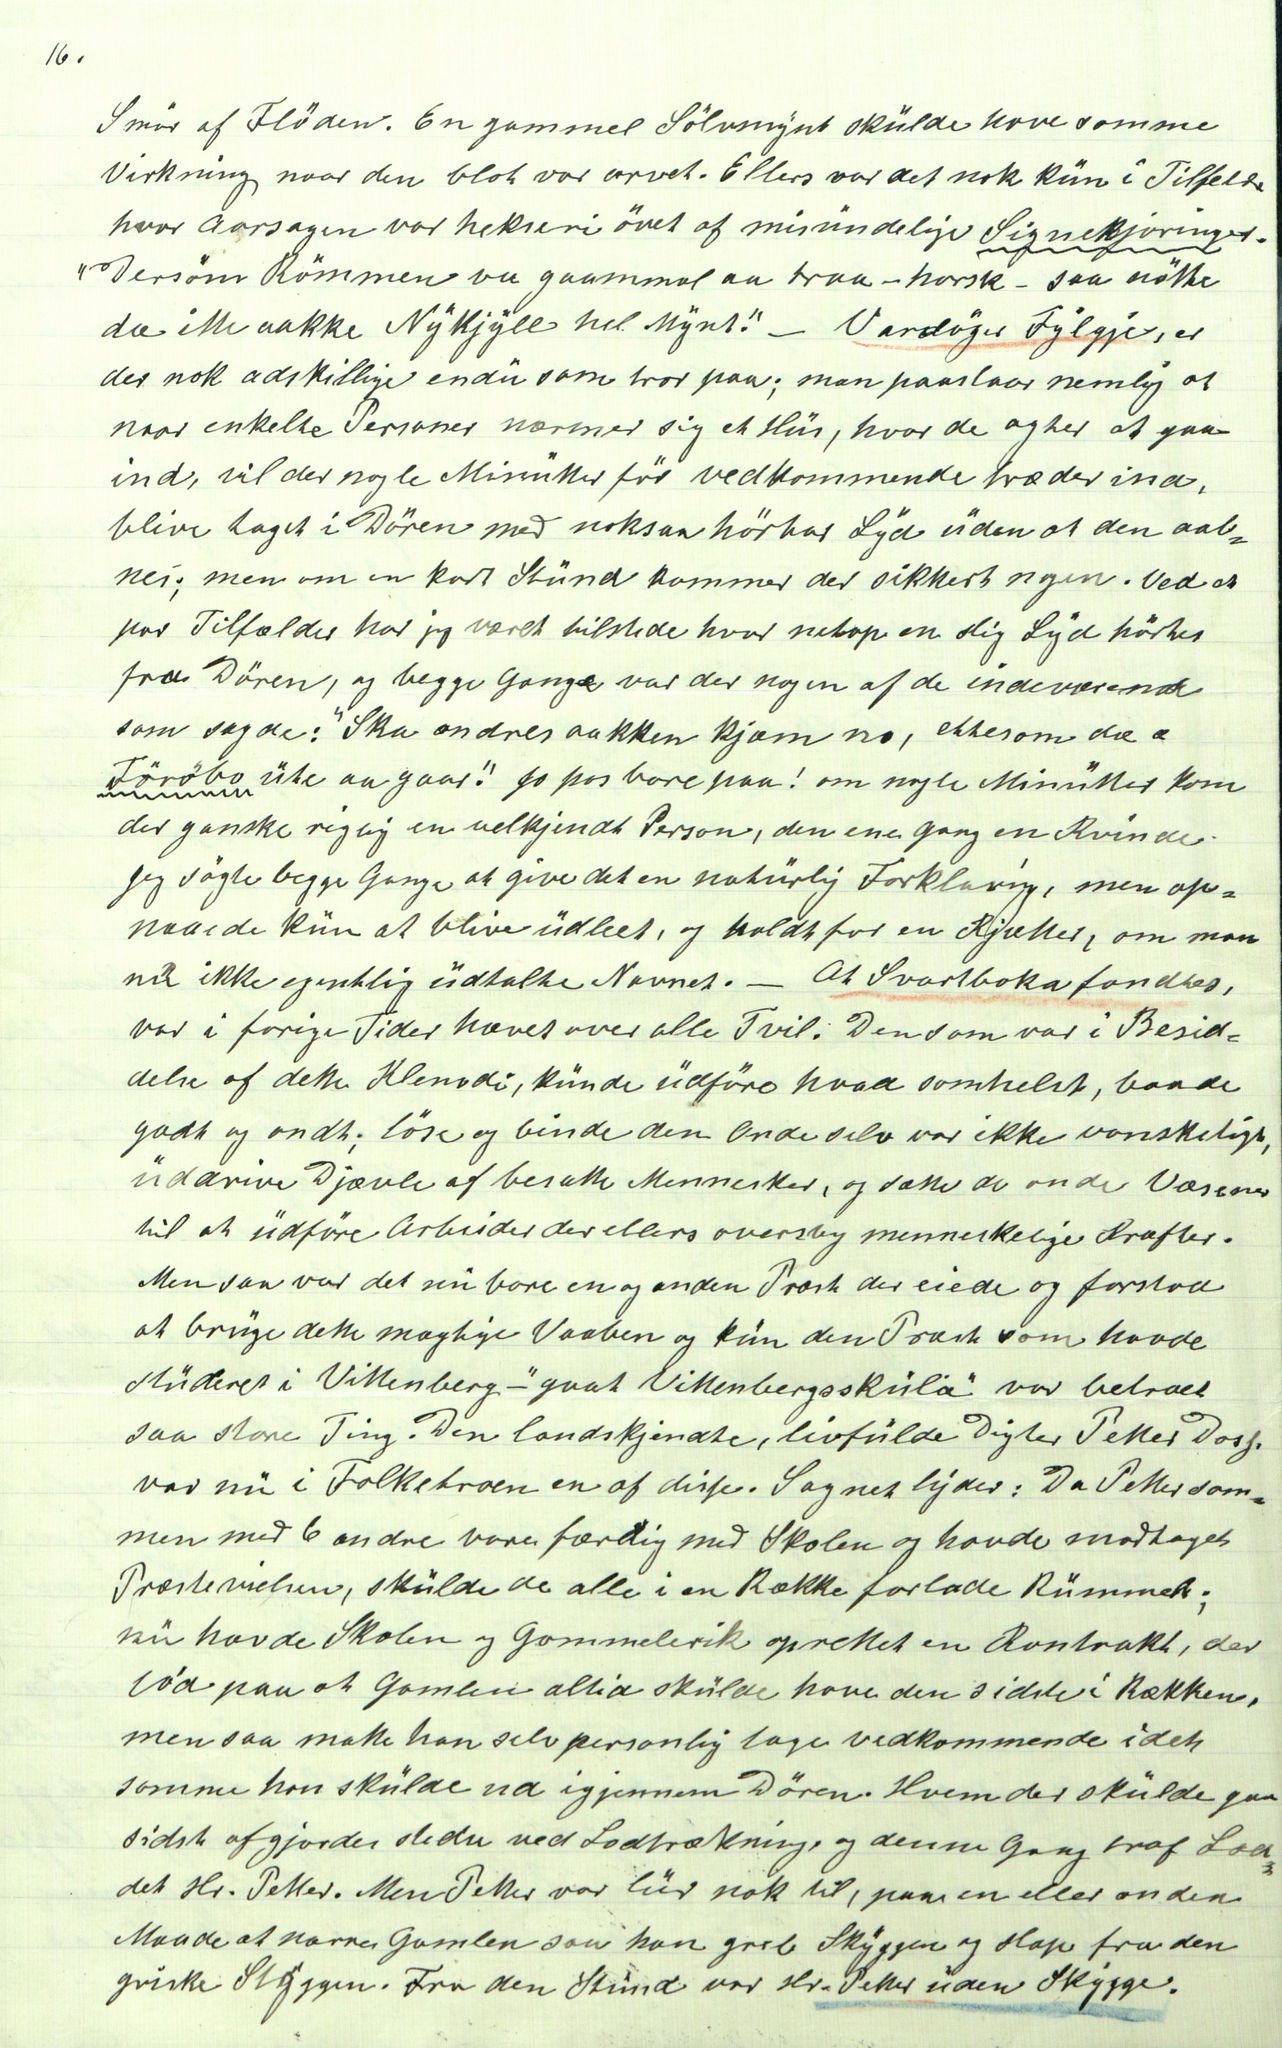 16.
Smör af Flöden. En gammel Sölvmynt skulde have samme
Virkning naar den blot var arvet. Ellers var det nok kun i Tilfelde
hvor Aarsagen var hekseri övet af misundelige Signekjæringer.
"Dersöm Römmen va gaammal aa traa - harsk - saa nötte
dæ itte aakke Nykjyll hel Mynt." - Vardöger Fylgje, er
der nok adskillige endu som tror paa; man paastaar nemlig at
naar enkelte Personer nærmer sig et Hus, hvor de agter at gaa
ind, vil der nogle Minutter för vedkommende træder ind,
blive taget i Dören med noksaa hörbar Lyd uden at den aab=
nes; men om en kort Stund kommer der sikkert nogen. Ved et
par Tilfælder har jeg været tilstede hvor netop en slig Lyd hörtes
fra Dören, og begge Gange var der nogen af de indeværende
som sagde: "Ska ondres aakken kjæm no, ettesom dæ æ
Föröbo ute aa gaar." Jo pas bare paa! om nogle Minutter kom
der ganske rigtig en velkjendt Person, den ene Gang en Kvinde.
Jeg sögte begge Gange at give det en naturlig Forklaring, men op=
naaede kun at blive udleet, og holdt for en Kjætter, om man
nu ikke egentlig udtalte Navnet. - At Svartboka fandtes,
var i forige Tider hævet over alle Tvil. Den som var i Besid=
delse af dette Klenodi, kunde udföre hvad somhelst, baade
godt og ondt; löse og binde den Onde selv var ikke vanskeligt,
uddrive Djævle af besatte Mennesker, og sætte de onde Væsener
til at udföre Arbeider der ellers oversteg menneskelige Kræfter.
Men saa var det nu bare en og anden Præst der eiede og forstod
at bruge dette mægtige Vaaben og kun den Præst som havde
studeret i Vittenberg - "gaat Vittenbergsskula" var betroet
saa store Ting. Den landskjendte, livfulde Digter Petter Dass.
var nu i Folketroen en af disse. Sagnet lyder: Da Petter sam=
men med 6 andre vare færdig med Skolen og havde modtaget
Præstevielsen, skulde de alle i en Række forlade Rummet;
nu havde Skolen og Gammelerik oprettet en Kontrakt, der
löd paa at Gamlen altid skulde have den sidste i Rækken,
men saa matte han selv personlig tage vedkommende idet
samme han skulde ud igjennem Dören. Hvem der skulde gaa
sidst afgjordes stedse ved Lodtrækning, og denne Gang traf Lod=
det Hr. Petter. Men Petter var lur nok til, paa en eller anden
Maade at narre Gamlen saa han greb Skyggen og slap fra den
griske Styggen. Fra den Stund var Hr. Petter uden Skygge.